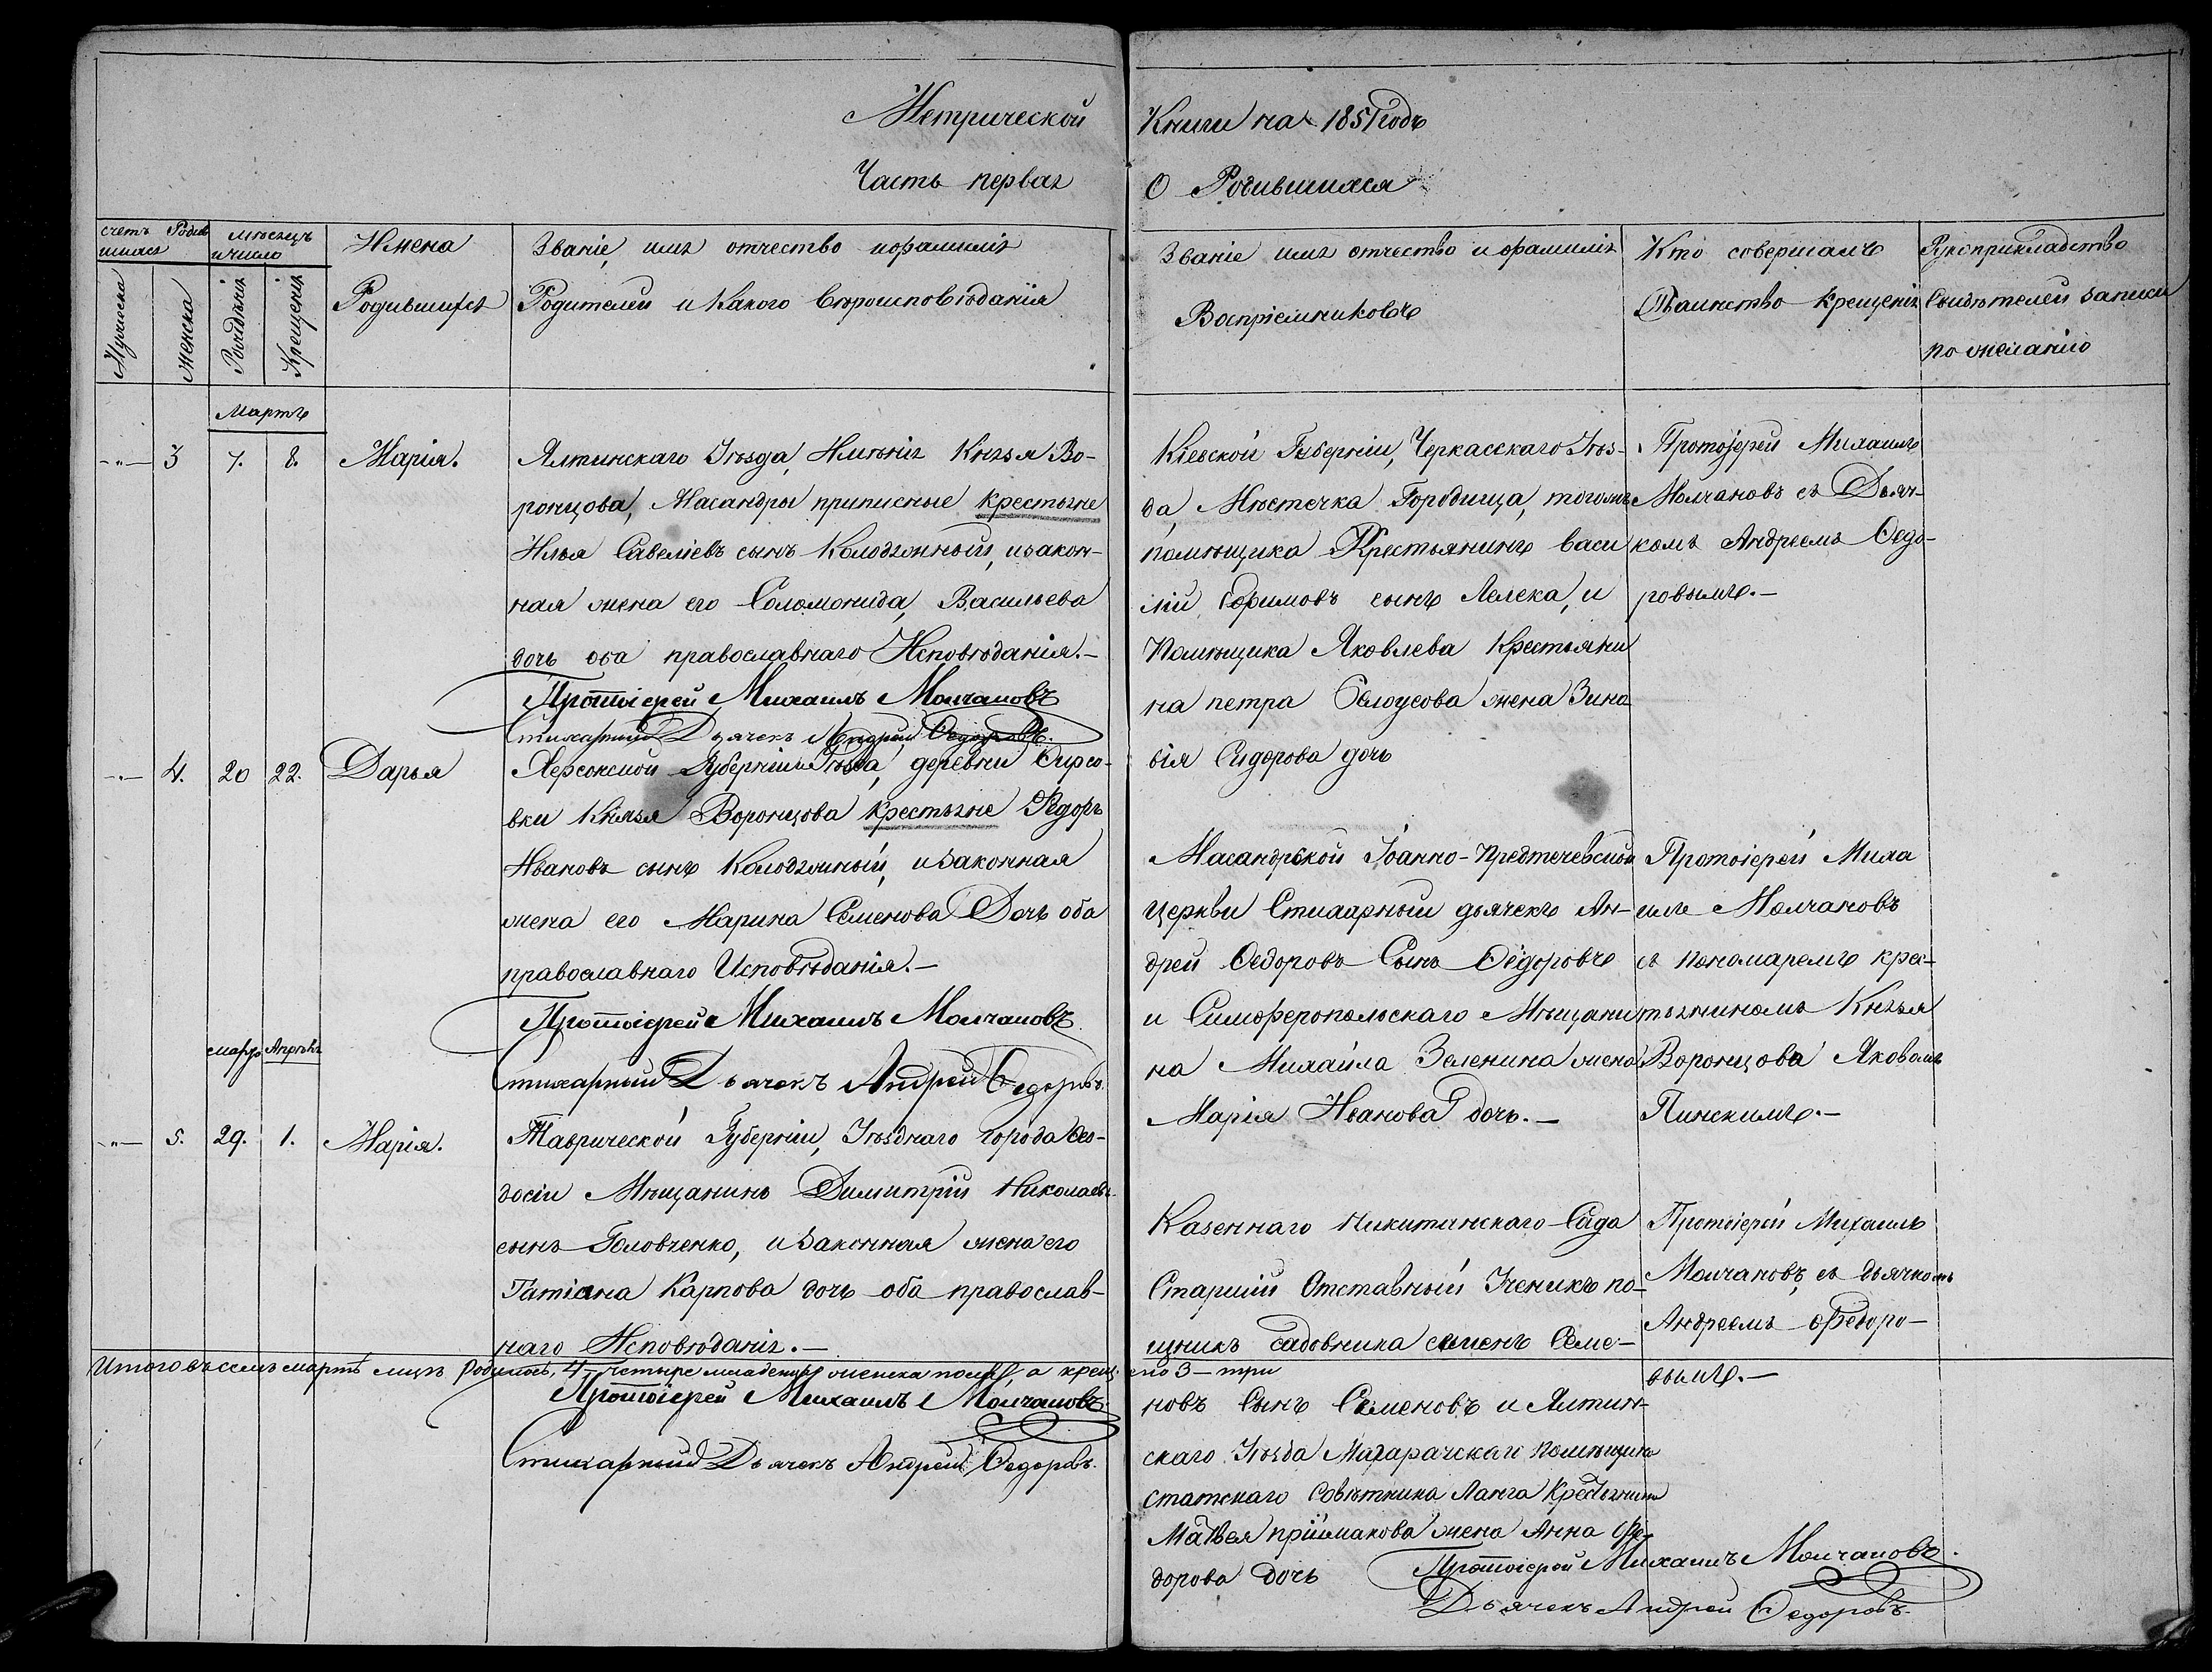 Метрической Книги на 1851 годъ
Часть первая О Родившихся
счетъ Родив
шихся
мѣсяцъ
и число
Имена
Родившихся
Званіе, имя отчество и фамилія
Родителей и Какого вѣроисповѣданія
Званіе имя отчество и фамилія
Воспріемниковъ
Кто совершалъ
Таинство Крещенія
Рукоприкладство
Свидѣтелей записи
по желанію
Мужеска
Женска
Рожденія
Крещенія
Мартъ
-"- 3 7. 8. Марія.
Ялтинскаго Уѣзда, Имѣнія Князя Во-
ронцова, Масандры приписные крестьяне
Илья Савеліевъ сынъ Колодяжный, и закон-
ная жена его Соломонида, Васильева
дочь оба православнаго Исповѣданія.-
Протоіерей Михаилъ Молчановъ
Стихарный Дьячекъ Андрей Федоровъ.
Кіевской Губерніи, Черкасскаго Уѣз-
да, Мѣстечка Городища, тогожъ
помѣщика Крестьянинъ Васи
лій Ефимовъ сынъ Лелека, и
Помѣщика Яковлева Крестьяни
на петра Белоусова жена Зино
вія Сидорова дочь
Протоіерей Михаилъ
Молчановъ съ Дьяч-
комъ Андреемъ Федо-
ровымъ.-
-"- 4. 20 22. Дарья
Херсонской Губерніи и Уѣзда, деревни
вки Князя Воронцова крестьяне Федоръ
Ивановъ сынъ Колодяжный, и законная
жена его Марина Семенова Дочь оба
православнаго Исповѣданія.-
Протоіерей Михаилъ Молчановъ
Стихарный Дьячекъ Андрей Федоровъ.
Масандрской Іоанно-Предтечевской
церкви Стихарный дьячекъ Ан-
дрей Федоровъ Сынъ Федоровъ
и Симферопольскаго Мѣщани
на Михайла Зеленина жена
Марія Иванова дочь.-
Протоіерей Миха
илъ Молчановъ
съ пономаремъ крес-
тьяниномъ Князя
Воронцова Яковомъ
Пинскимъ.-
мартъ Апрѣль
-"- 5. 29. 1. Марія.
Таврической Губерніи, Уѣзднаго города Фео-
досіи Мѣщанинъ Димитрій Николаевъ
сынъ Головченко, и Законная жена его
Татіана Карпова дочь оба православ-
наго Исповѣданія.-
Казеннаго Никитинскаго Сада
Старшій Отставный Ученикъ по-
щникъ садовника семенъ Семе-
новъ Сынъ Семеновъ и Ялтин-
скаго Уѣзда Магарачскаго помѣщика
статскаго совѣтника Ланга Крестьянина
Матвея пріймакова жена Анна Фе-
дорова дочь
Протоіерей Михаилъ
Молчановъ, съ дьячкомъ
Андреемъ Федоро-
вымъ.-
Итого въ семъ мартѣ мцѣ родилось, 4 - четыре младенца женска пола, а крещено 3 - три
Протоіерей Михаилъ Молчановъ.
Стихарный Дьячекъ Андрей Федоровъ.
Протоіерей Михаилъ Молчановъ.
Дьячекъ Андрей Федоровъ.